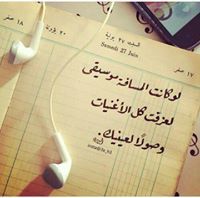 ١٨ صفر
٢٠ يونيو
السبت ٢٧ يونية
١٧ صفر
Samedi 27 Juin
لو كانت المسافة موسيقى
لعزفت كل الأغنيات
وصولًا لعينيك.